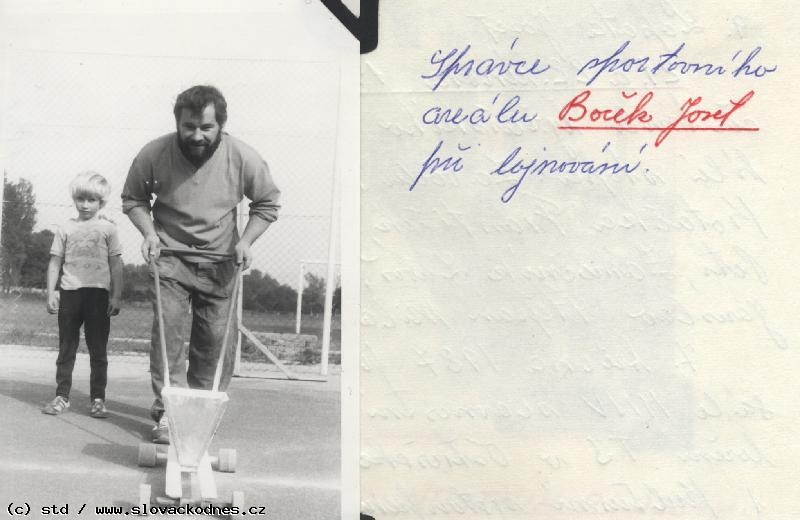 Správce sportovního
areálu Boček Josef
při lajnování.
(c) std / www.slovackodnes.cz